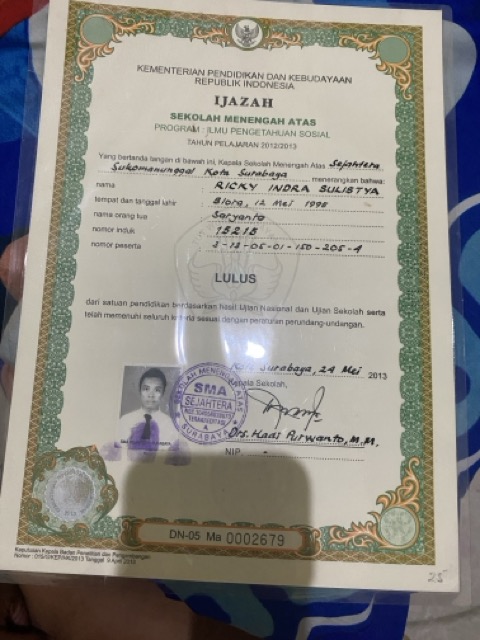 KEMENTERIAN PENDIDIKAN DAN KEBUDAYAAN
REPUBLIK INDONESIA
IJAZAH
SEKOLAH MENENGAH ATAS
PROGRAM : ILMU PENGETAHUAN SOSIAL
TAHUN PELAJARAN 2012/2013
Yang bertanda tangan di bawah ini, Kepala Sekolah Menengah Atas Sejahtera
Sukomanunggal Kota Surabaya menerangkan bahwa:
nama : RICKY INDRA SULISTYA
tempat dan tanggal lahir : Blora, 12 Mei 1995
nama orang tua : Saryanto
nomor induk : 13218
nomor peserta : 3-13-05-01-150-205-4
LULUS
dari satuan pendidikan berdasarkan hasil Ujian Nasional dan Ujian Sekolah serta
telah memenuhi seluruh kriteria sesuai dengan peraturan perundang-undangan.
Surabaya, 24 Mei 2013
Kepala Sekolah,
SMA
SEJAHTERA
SURABAYA
Drs. Hadi Purwanto, M.M.
NIP.
DN-05 Ma 0002679